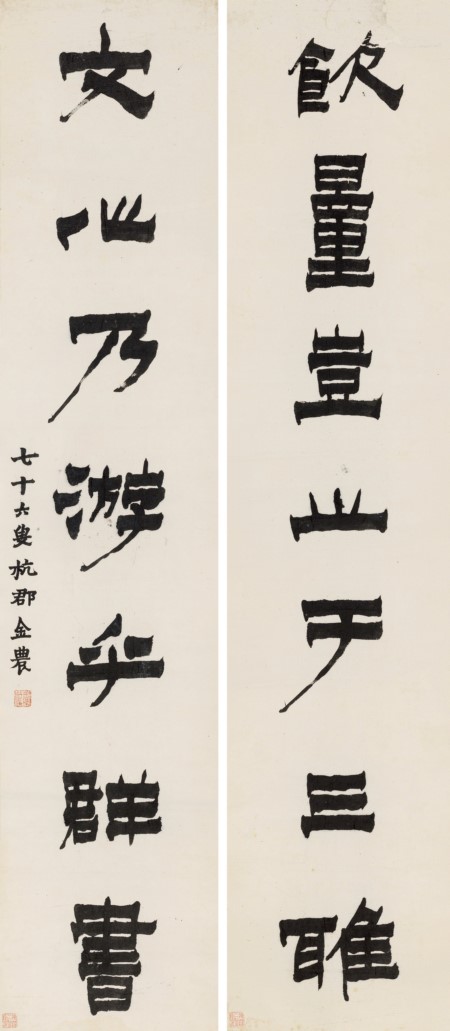 飲量豈止于三雅
文心乃游乎群書
七十六叟杭郡金農